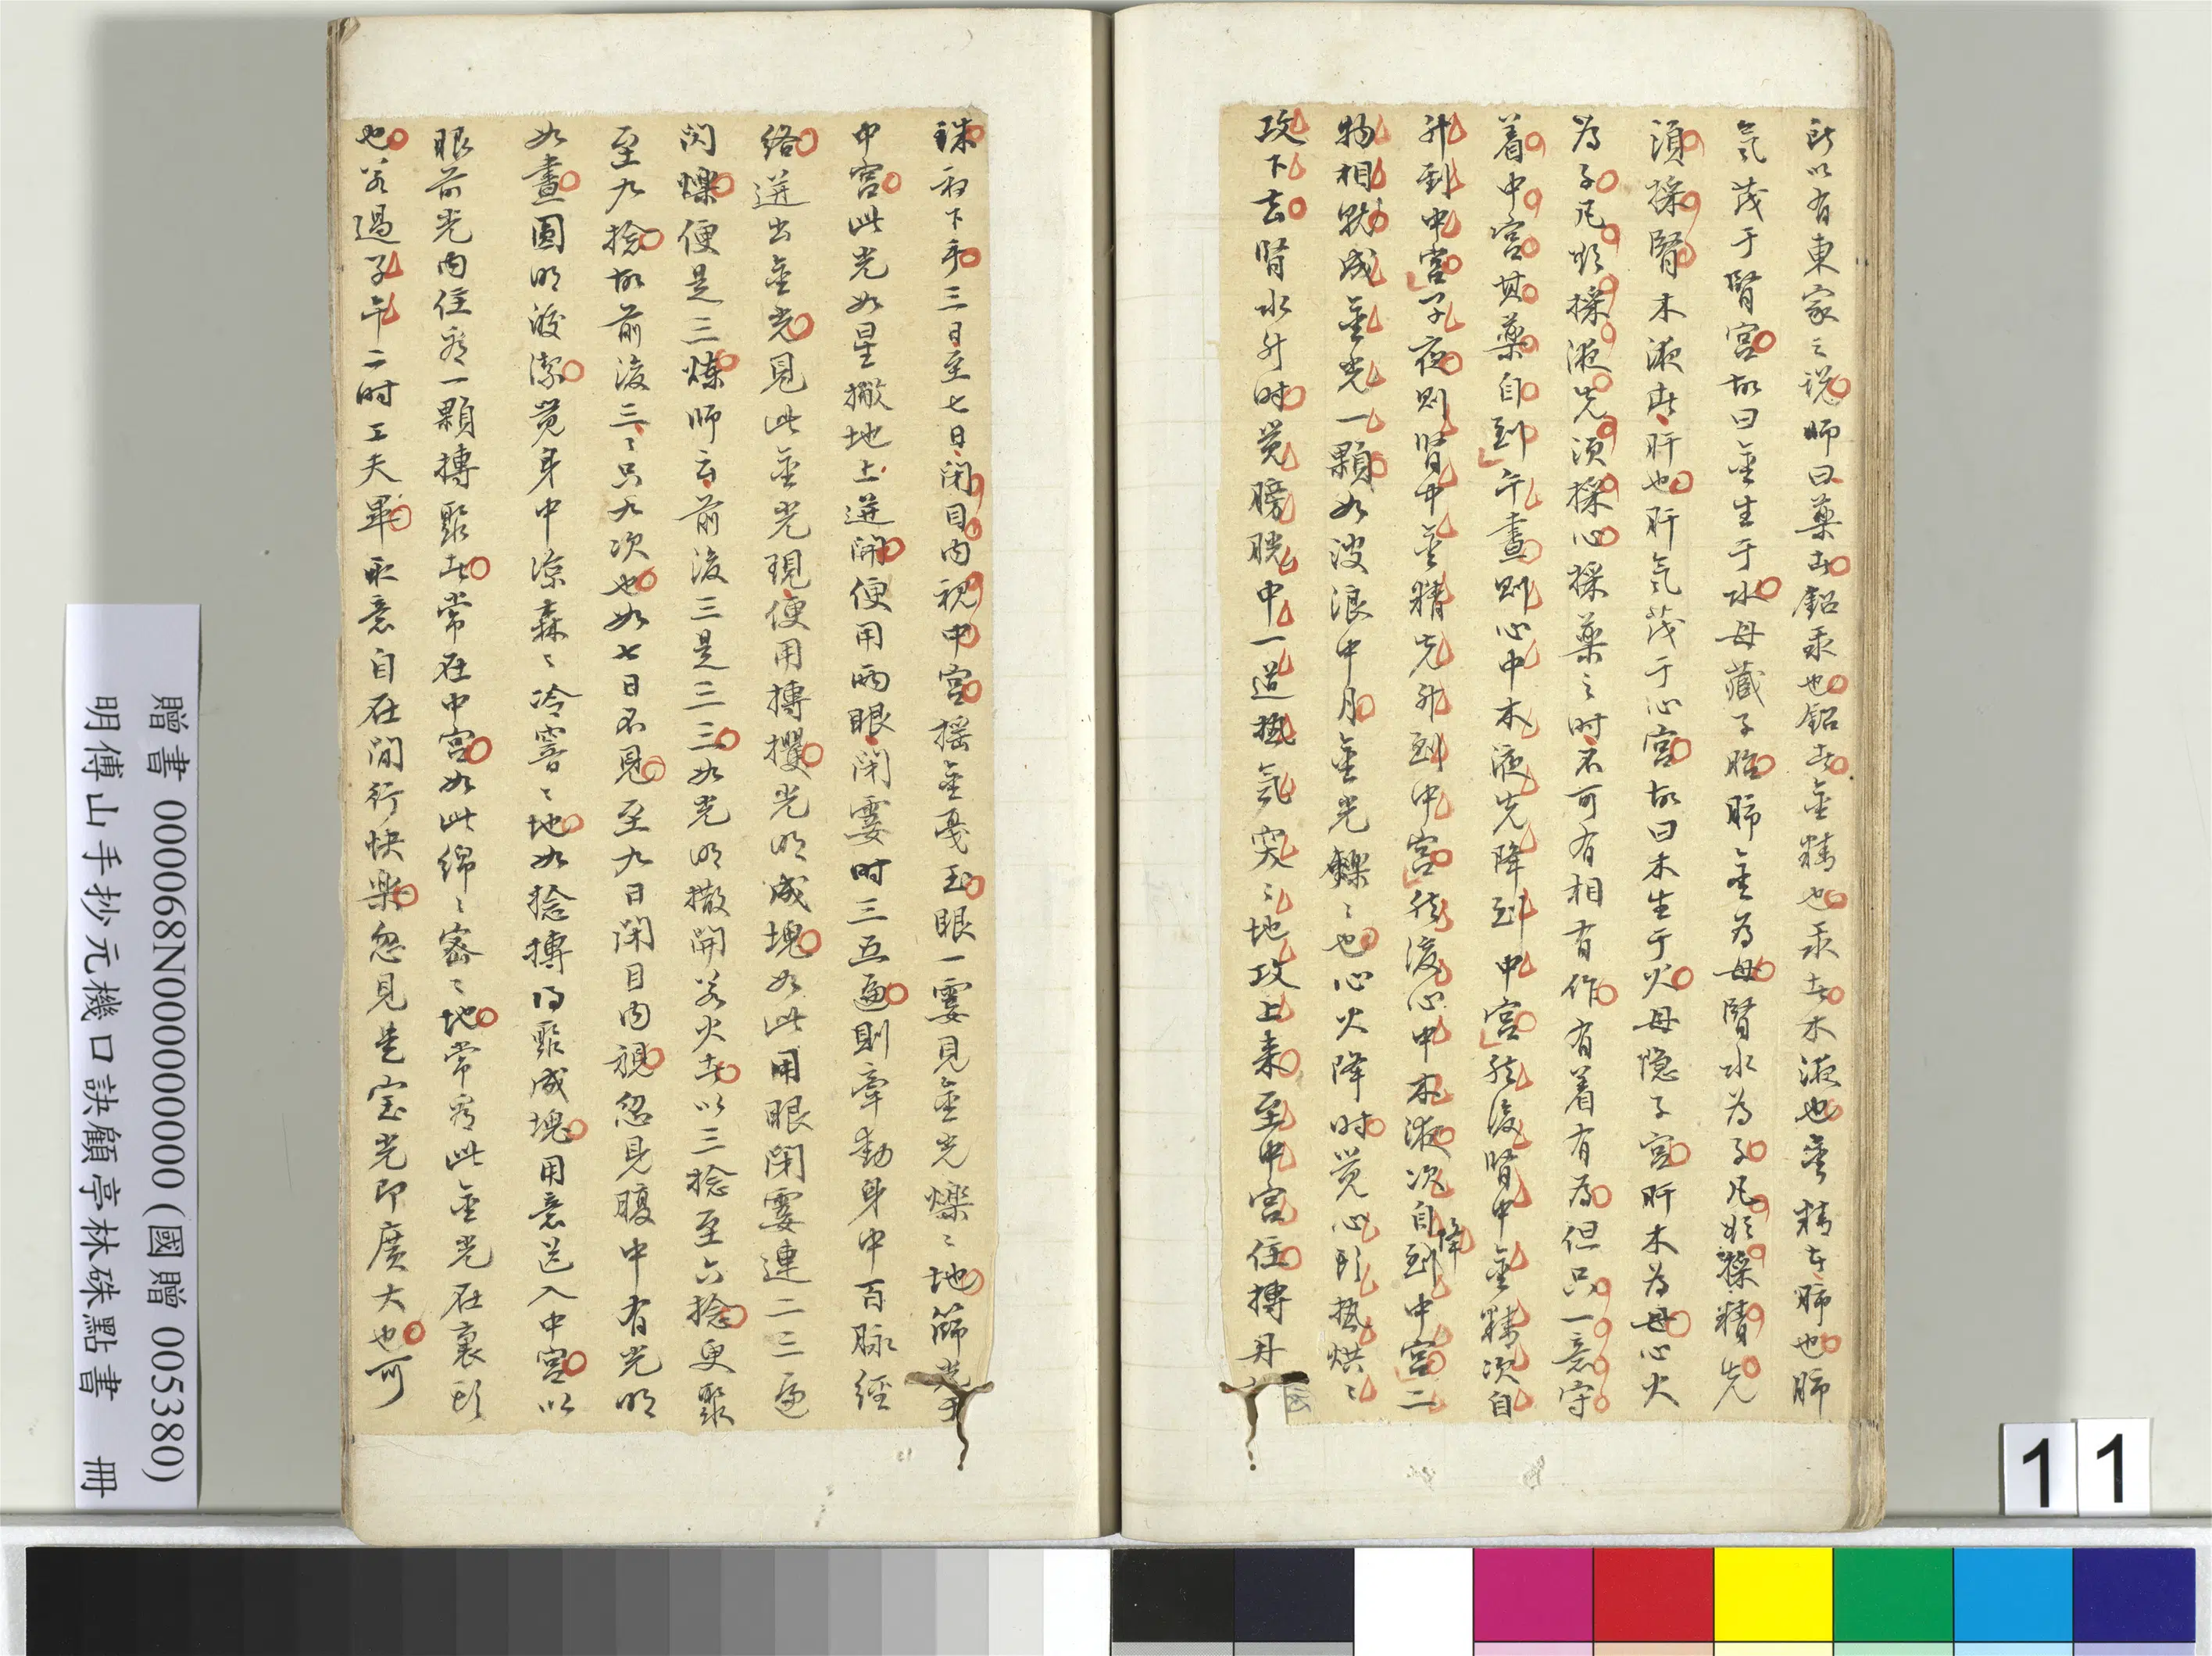 所以有東家之說師曰藥者鉛汞也鉛者金精也汞者木液也金精者肺也肺
氣茂于腎宮故曰金生于水母藏子胎肺金為母腎水為子凡欲採精先
須採腎木液者肝也肝氣茂于心宮故曰木生于火母隐子宮肝木為母心火
為子凡欲採液先須採心採藥之时不可有相有作有着有為但只一意守
着中宮其藥自到午晝則心中木液先降到中宮然後腎中金精次自
升到中宮子夜則腎中金精先升到中宮然後心中木液次自降到中宮二
物相就成金光一顆如波浪中月金光鑠〻也心火降时覚心頭热烘〻
攻下去腎水升时覚膀胱中一道热氣突〻地攻上来至中宮住摶丹
珠初下手三日至七日閉目内視中宮摇金戞玉眼一霎見金光爍〻地師
中宮此光如星撒地上迸開便用兩眼閉霎时三五遍則牽動身中百脉經
絡迸出金光見此金光現便用摶攖光明成塊如此用眼閉霎連二三遍
閃爍便是三煉師云前後三是三三三如光明撒開若火者以三捻至六捻更聚
至九捻故前後三〻只九次也如七日不見至九日閉目内視忽見腹中有光明
如晝圓明皎潔覚身中涼森〻冷雪〻地如捻摶得聚成塊用意送入中宮以
眼前光内住看一顆摶聚者常在中宮如此綿〻密〻地常看此金光在裏頭
也若過子午二时工夫畢取意自在閒行快樂忽見是宝光即廣大也可
贈書 000068N000000000 (國贈 005380)
明傅山手抄元機口訣顧亭林硃點書 冊
11